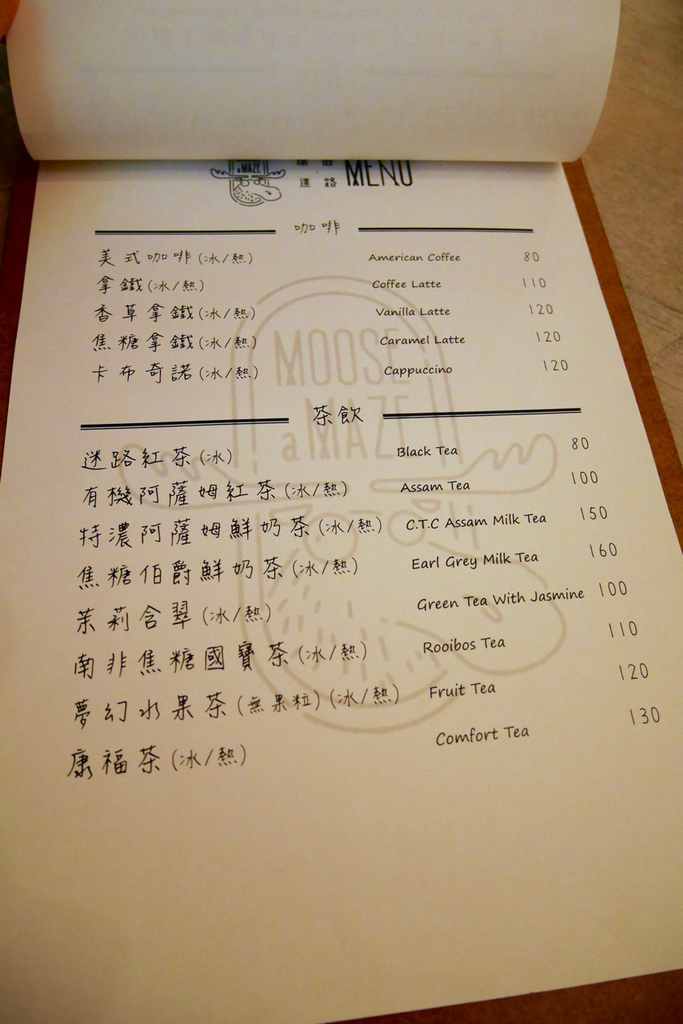 a MAZE
迷路 MENU
咖啡
美式咖啡(冰/熱) American Coffee 80
拿鐵(冰/熱) Coffee Latte 110
香草拿鐵(冰/熱) Vanilla Latte 120
焦糖拿鐵(冰/熱) Caramel Latte 120
卡布奇諾(冰/熱) Cappuccino 120
MOOSE
a MAZE
茶飲
迷路紅茶(冰) Black Tea 80
有機阿薩姆紅茶(冰/熱) Assam Tea 100
特濃阿薩姆鮮奶茶(冰/熱) C.T.C Assam Milk Tea 150
焦糖伯爵鮮奶茶(冰/熱) Earl Grey Milk Tea 160
茉莉含翠(冰/熱) Green Tea With Jasmine 100
南非焦糖國寶茶(冰/熱) Rooibos Tea 110
夢幻水果茶(無果粒)(冰/熱) Fruit Tea 120
康福茶(冰/熱) Comfort Tea 130